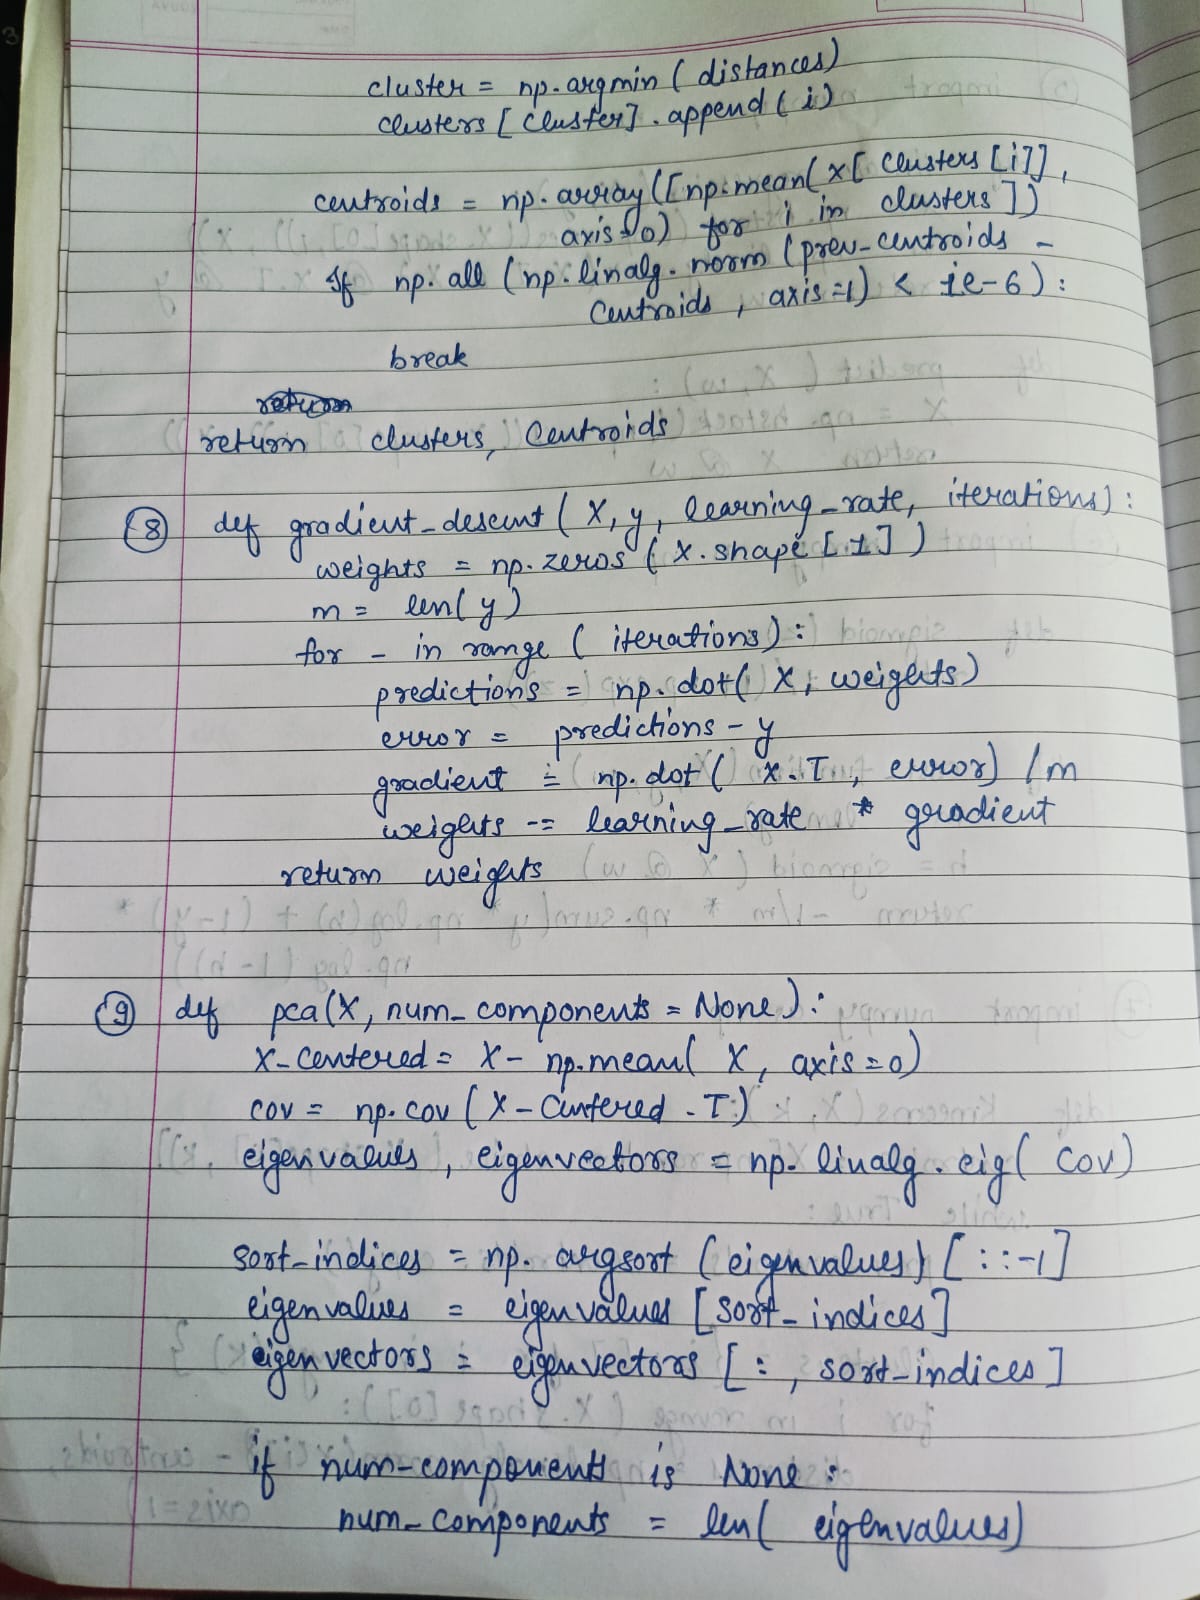 cluster = np.argmin (distances)
clusters [cluster].append(i)
centroids = np.array([np.mean(x[clusters[i]],
axis=0) for i in clusters])
If np.all (np.linalg.norm (prev_centroids -
Centroids, axis=1) < 1e-6):
break
return
return clusters, Centroids
8 def gradient_descent (X, y, learning_rate, iterations):
weights = np.zeros (X.shape [1])
m = len(y)
for _ in range (iterations):
predictions = np.dot(X, weights)
error = predictions - y
gradient = np.dot( X.T, error) /m
weights -= learning_rate * gradient
return weights
9 def pca(X, num_components = None):
X_Centered = X - np.mean( X, axis=0)
cov = np.cov (X_Centered.T)
eigenvalues, eigenvectors = np.linalg.eig( Cov)
sort_indices = np.argsort (eigenvalues) [::-1]
eigenvalues = eigenvalues [sort_indices]
eigenvectors = eigenvectors [:, sort_indices]
if num_components is None:
num_components = len( eigenvalues)